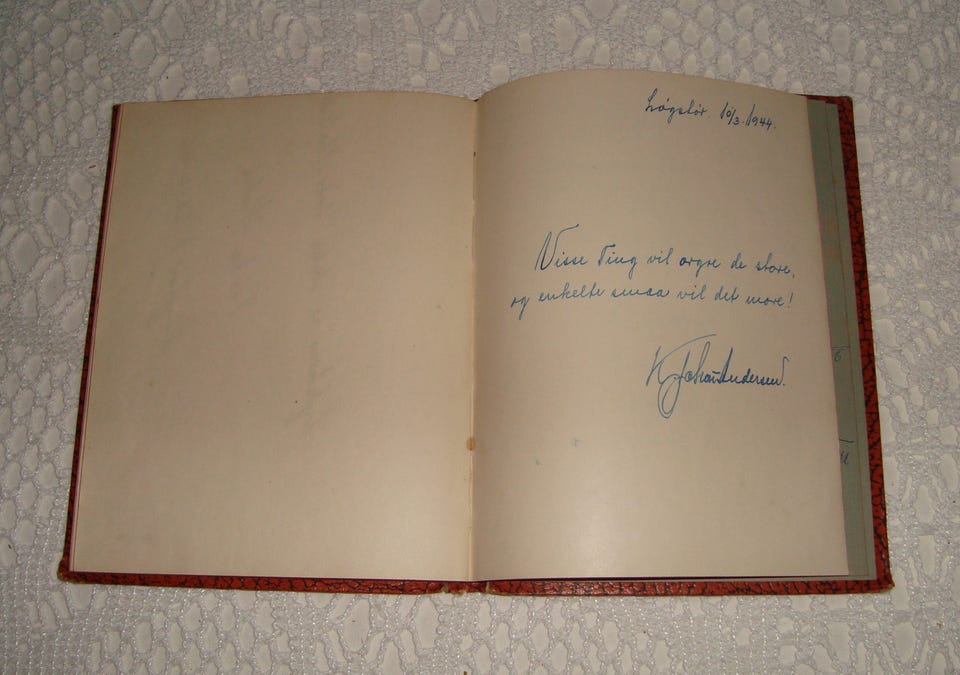 Løgstør. 10/3. 1944.
Visse Ting vil ærgre de store,
og enkelte smaa vil det more!
K Johan Andersen.
6